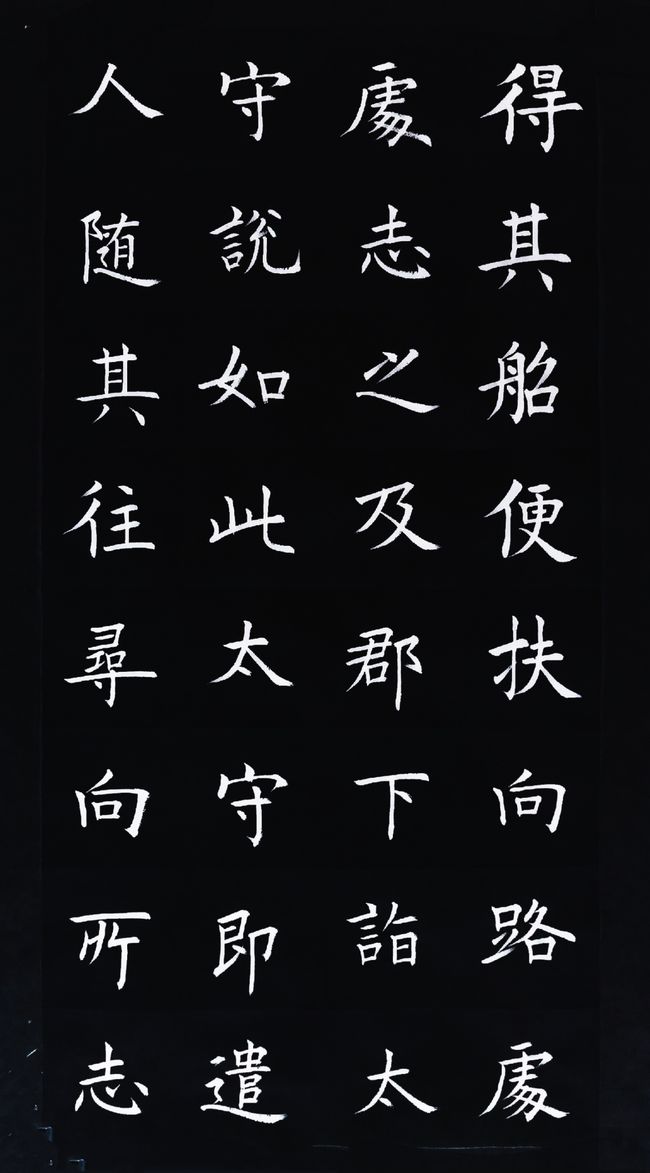 得其船便扶向路處
處志之及郡下詣太
守說如此太守即遣
人随其往尋向所志